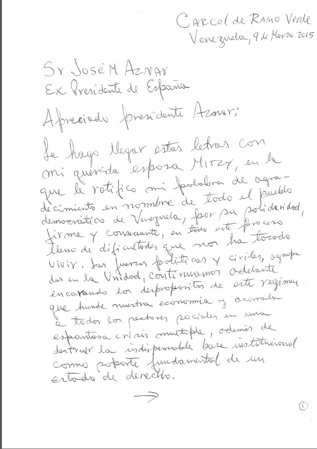 Carcel de Ramo Verde
Venezuela, 9 de Marzo 2015
Sr José M Aznar
Ex Presidente de España
Apreciado presidente Aznar;
Le hago llegar estas letras con
mi querida esposa Mitzy, en la
que le ratifico mi palabra de agra-
decimiento en nombre de todo el pueblo
democrático de Venezuela, por su solidaridad,
firme y constante, en todo este proceso
lleno de dificultades que nos ha tocado
vivir. Las fuerzas políticas y civiles, agrupa-
das en la Unidad, continuamos adelante
encarando los despropósitos de este régimen
que hunde nuestra economía y acorrala
a todos los sectores sociales en una
espantosa crisis múltiple, además de
destruir la indispensable base institucional
como soporte fundamental de un
estado de derecho.
→
1